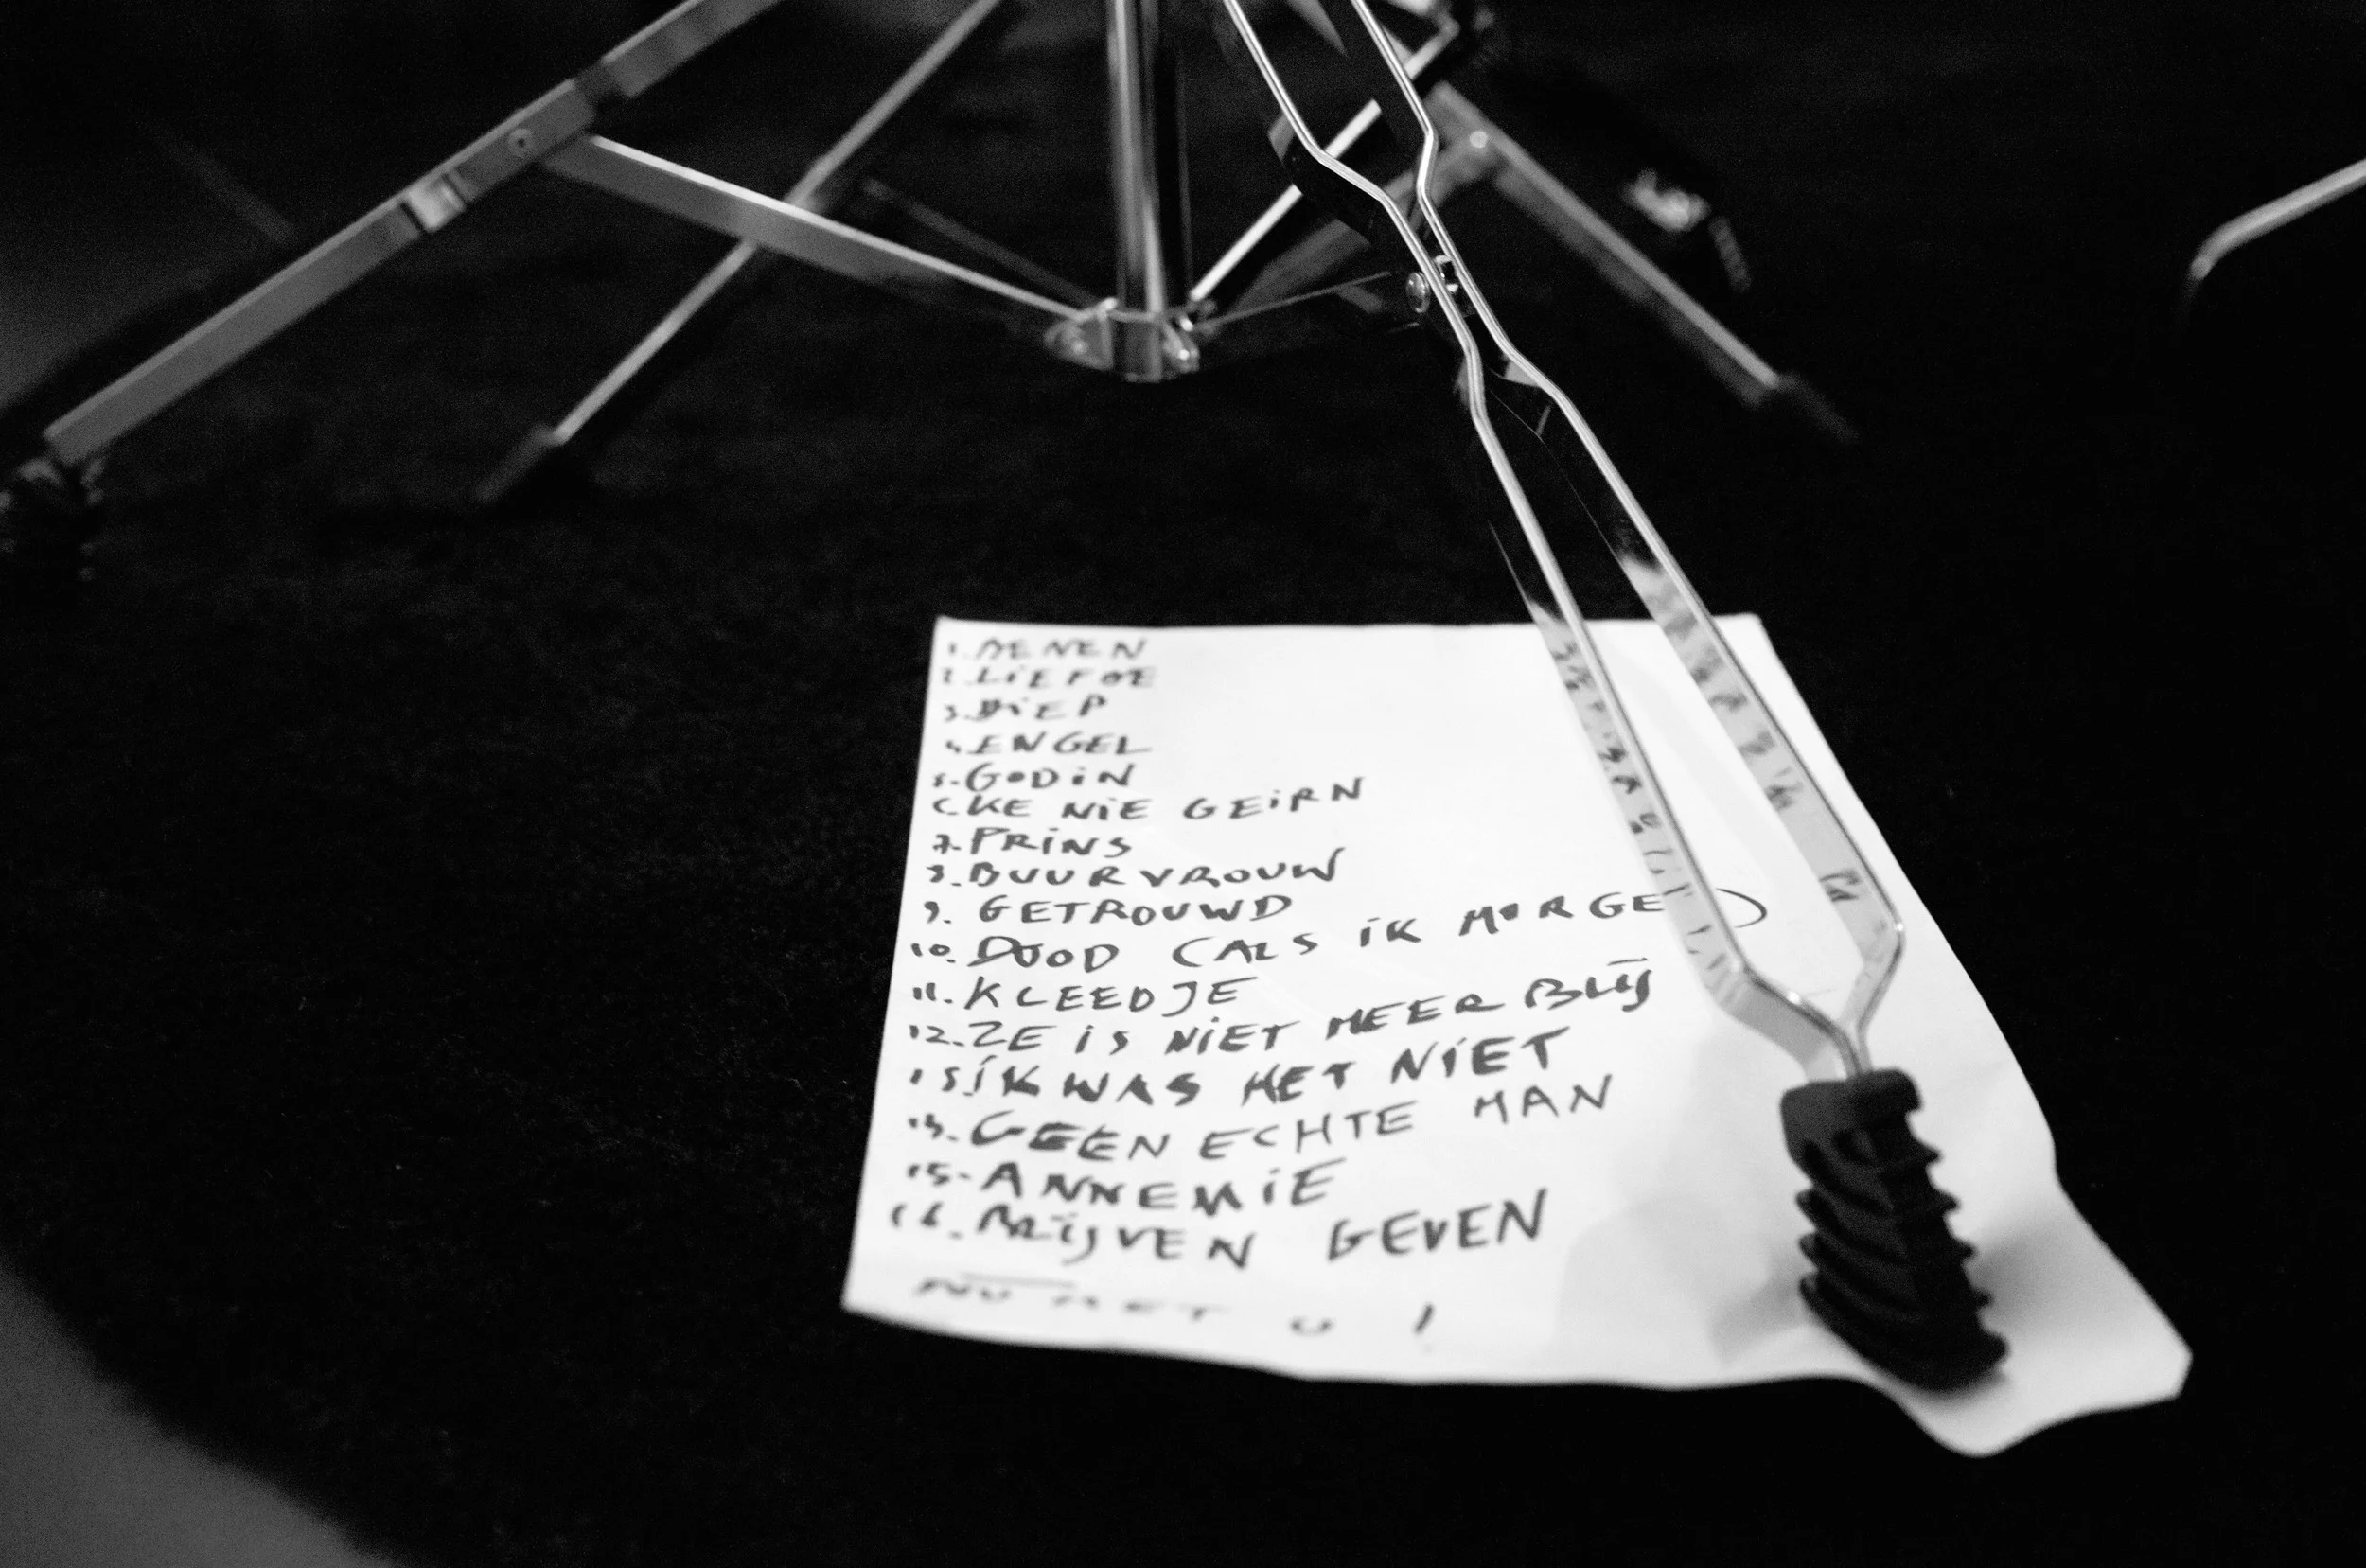 1. DENEN
2. LIEFDE
3. DIEP
4. ENGEL
5. GODIN
6. KE NIE GEIRN
7. PRINS
8. BUURVROUW
9. GETROUWD
10. DOOD (ALS IK MORGE )
11. KLEEDJE
12. ZE IS NIET MEER BLIJ
13 IK WAS HET NIET
14. GEEN ECHTE MAN
15. ANNEMIE
16. BLIJVEN GEVEN
NU MET U !